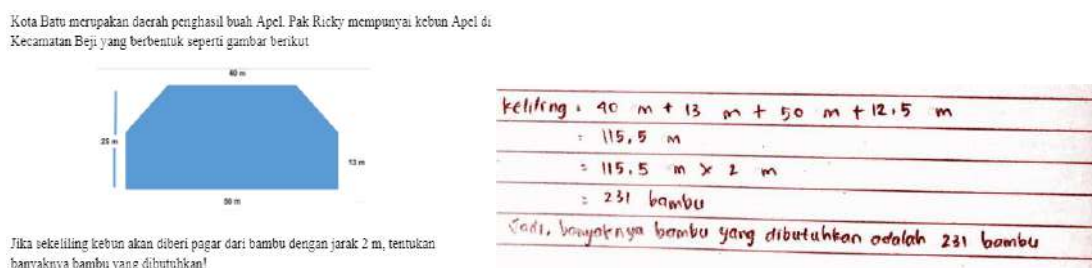 Kota Batu merupakan daerah penghasil buah Apel. Pak Ricky mempunyai kebun Apel di
Kecamatan Beji yang berbentuk seperti gambar berikut
40 m
25 m
13 m
50 m
Jika sekeliling kebun akan diberi pagar dari bambu dengan jarak 2 m, tentukan
banyaknya bambu yang dibutuhkan!
keliling : 40 m + 13 m + 50 m + 12,5 m
: 115,5 m
= 115,5 m x 2 m
: 231 bambu
Jadi, banyaknya bambu yang dibutuhkan adalah 231 bambu